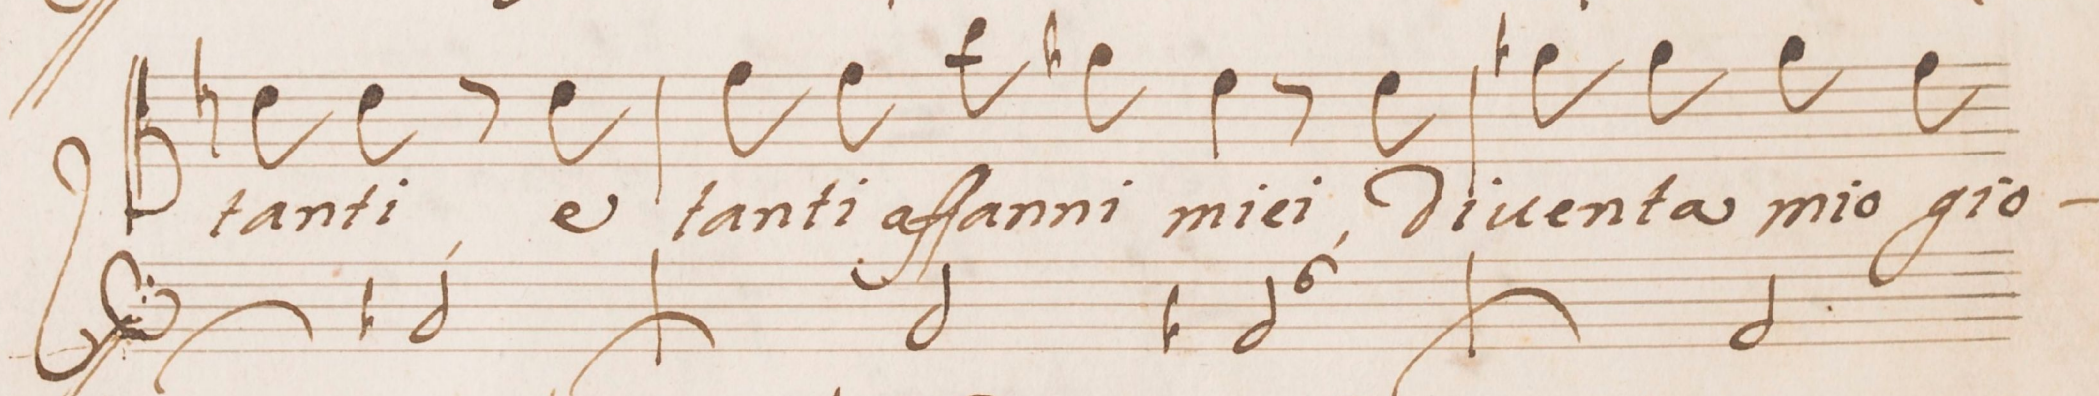 tanti e tanti affanni miei Diuenta mio gio-
6